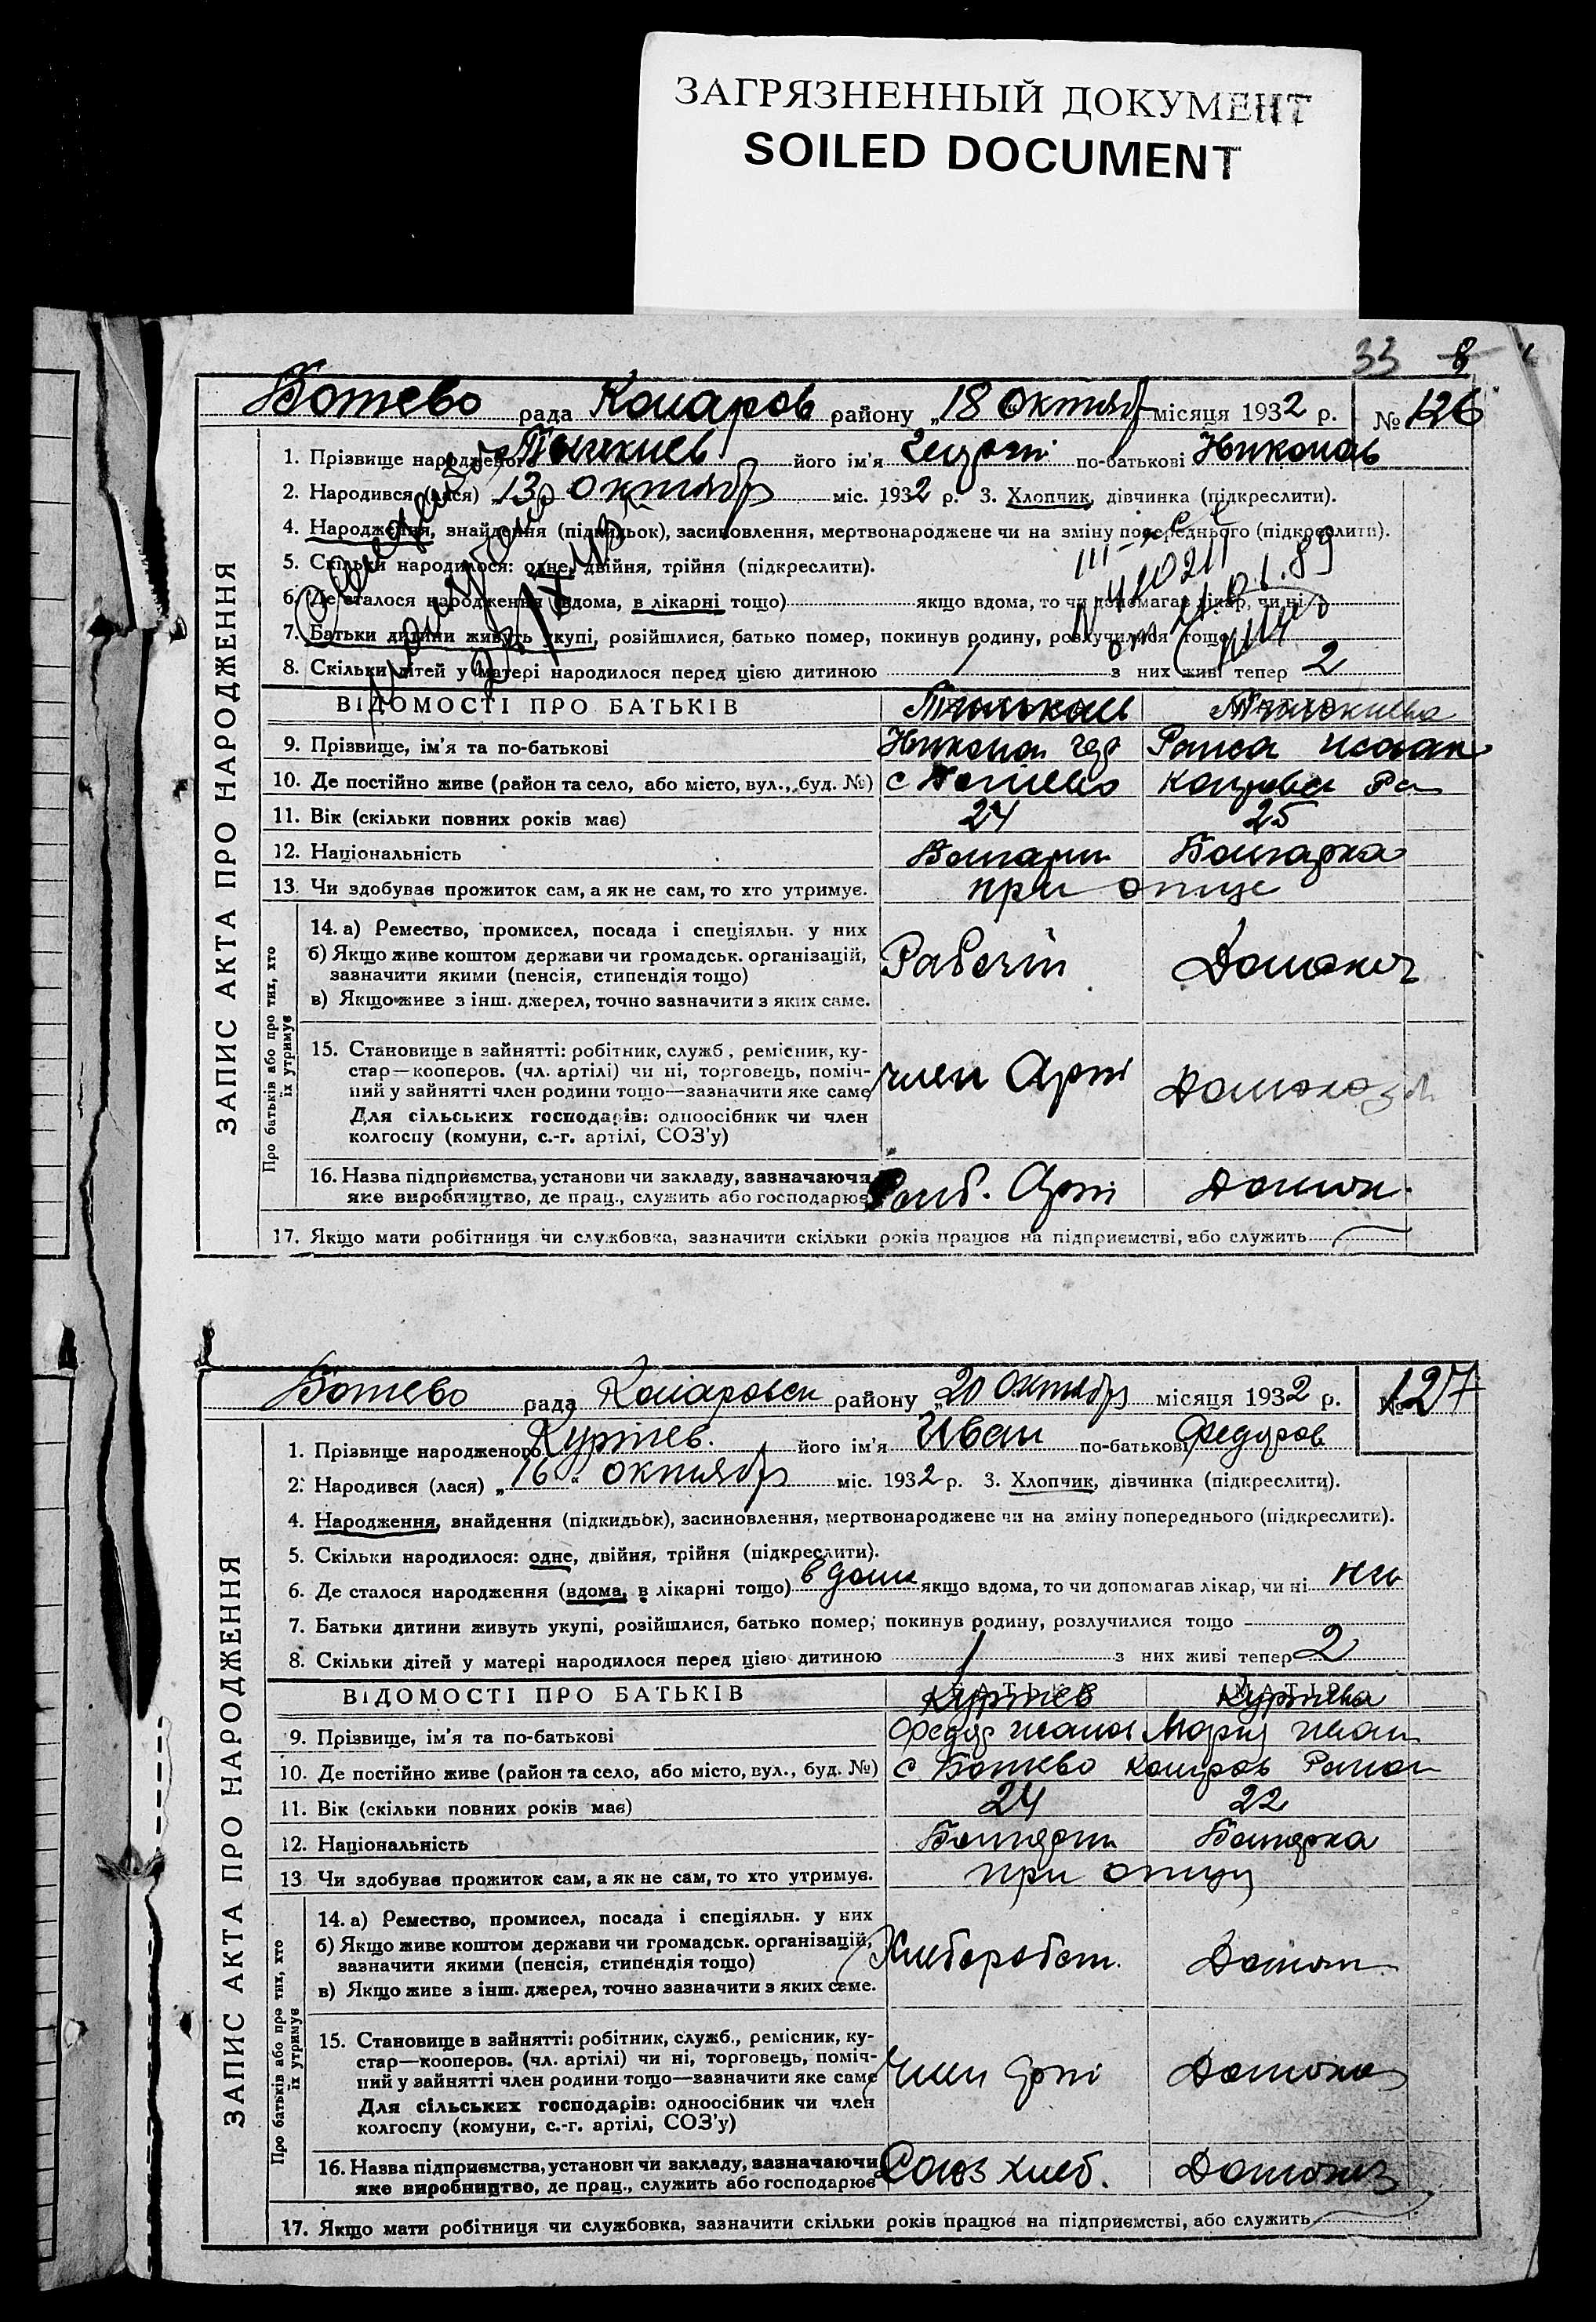 ЗАГРЯЗНЕННЫЙ ДОКУМЕНТ
SOILED DOCUMENT
33 8
Ботево рада Коларов району „18 Октяб місяця 1932 р. № 126
1. Прізвище народженого його ім'я по-батькові Николаев
2. Народився (лася) „13 октябр міс. 1932 р. 3. Хлопчик, дівчинка (підкреслити).
4. Народження, знайдення (підкидьок), засиновлення, мертвонароджене чи на зміну попереднього (підкреслити).
5. Скільки народилося: одне, двійня, трійня (підкреслити).
6. Де сталося народження (вдома, в лікарні тощо) якщо вдома, то чи допомагав лікар, чи ні
7. Батьки дитини живуть укупі, розійшлися, батько помер, покинув родину, розлучилися тощо
8. Скільки дітей у матері народилося перед цією дитиною 1 з них живі тепер 2
III-
№ 420211
от 21.01.89
ВІДОМОСТІ ПРО БАТЬКІВ
9. Прізвище, ім'я та по-батькові Николай Раиса
10. Де постійно живе (район та село, або місто, вул., буд. №) с Ботево
11. Вік (скільки повних років має) 24 25
12. Національність Болгарин Болгарка
13. Чи здобуває прожиток сам, а як не сам, то хто утримує. при отце
14. а) Ремество, промисел, посада і спеціяльн. у них
б) Якщо живе коштом держави чи громадськ. організацій,
зазначити якими (пенсія, стипендія тощо) Рабочий Домохоз
в) Якщо живе з інш. джерел, точно зазначити з яких саме.
15. Становище в зайнятті: робітник, служб, ремісник, ку-
стар—кооперов. (чл. артілі) чи ні, торговець, поміч-
ний у зайнятті член родини тощо—зазначити яке саме член Арті Домохоз
Для сільських господарів: одноосібник чи член
колгоспу (комуни, с.-г. артілі, СОЗ'у)
16. Назва підприємства, установи чи закладу, зазначаючи
яке виробництво, де прац., служить або господарює Арті Домох.
17. Якщо мати робітниця чи службовка, зазначити скільки років працює на підприємстві, або служить
ЗАПИС АКТА ПРО НАРОДЖЕННЯ
Про батьків або про тих, хто їх утримує
Ботево рада Коларовск району „20 Октябр місяця 1932 р. № 127
1. Прізвище народженого Куртев. його ім'я Иван по-батькові Федоров
2. Народився (лася) „16“ октябр міс. 1932 р. 3. Хлопчик, дівчинка (підкреслити).
4. Народження, знайдення (підкидьок), засиновлення, мертвонароджене чи на зміну попереднього (підкреслити).
5. Скільки народилося: одне, двійня, трійня (підкреслити).
6. Де сталося народження (вдома, в лікарні тощо) в доме якщо вдома, то чи допомагав лікар, чи ні
7. Батьки дитини живуть укупі, розійшлися, батько помер, покинув родину, розлучилися тощо
8. Скільки дітей у матері народилося перед цією дитиною 1 з них живі тепер 2
ВІДОМОСТІ ПРО БАТЬКІВ БАТЬКО МАТІР
Куртев Куртева
9. Прізвище, ім'я та по-батькові Федор Иванов Мария Иван
10. Де постійно живе (район та село, або місто, вул., буд. №) с Ботево Коларов Район
11. Вік (скільки повних років має) 24 22
12. Національність Болгарин Болгарка
13. Чи здобуває прожиток сам, а як не сам, то хто утримує. при отцу
14. а) Ремество, промисел, посада і спеціяльн. у них
б) Якщо живе коштом держави чи громадськ. організацій,
зазначити якими (пенсія, стипендія тощо) Хлебороб Домохоз
в) Якщо живе з інш. джерел, точно зазначити з яких саме.
15. Становище в зайнятті: робітник, служб., ремісник, ку-
стар—кооперов. (чл. артілі) чи ні, торговець, поміч-
ний у зайнятті член родини тощо—зазначити яке саме член арті Домохоз
Для сільських господарів: одноосібник чи член
колгоспу (комуни, с.-г. артілі, СОЗ'у)
16. Назва підприємства, установи чи закладу, зазначаючи
яке виробництво, де прац., служить або господарює Союз хлеб. Домохоз
17. Якщо мати робітниця чи службовка, зазначити скільки років працює на підприємстві, або служить
ЗАПИС АКТА ПРО НАРОДЖЕННЯ
Про батьків або про тих, хто їх утримує